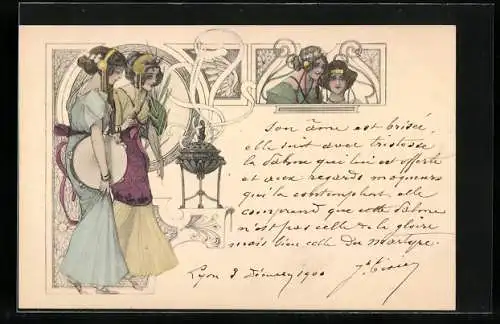 Son âme est brisée,
elle suit avec tristesse
la Sabone qui lui est offerte
et aux regards moqueurs
qui la contemplent, elle
comprend que cette Sabone
n'est pas celle de la gloire
mais bien celle du martyre.
Lyon 3 Décembre 1900